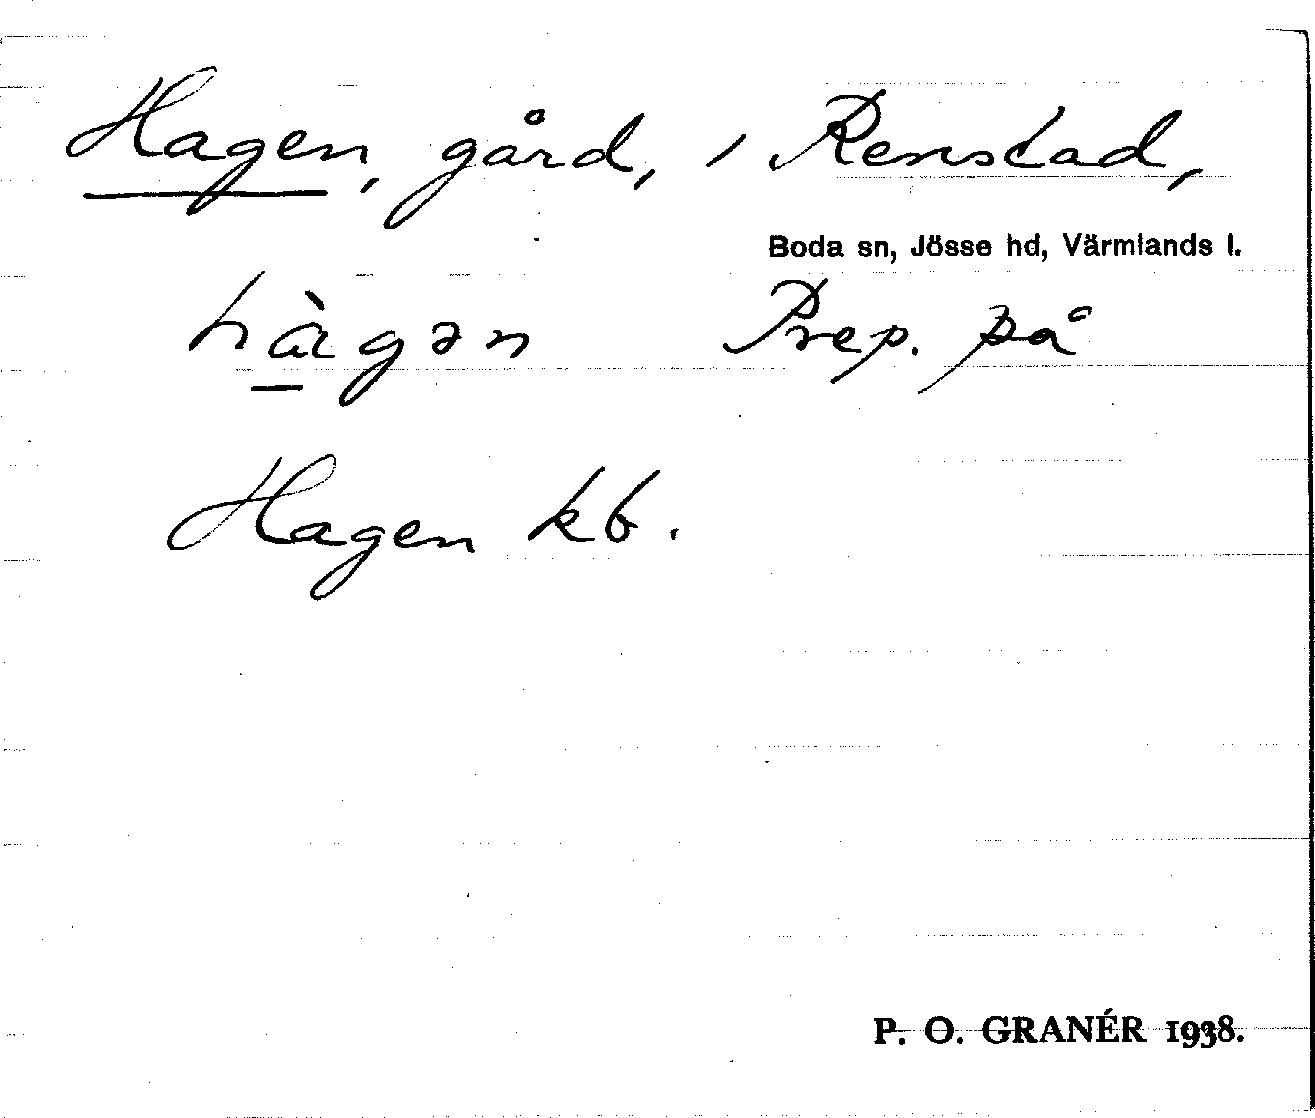 Hagen, gård, i Renstad,
Boda sn, Jösse hd, Värmlands l.
hàgən Prep. på
Hagen kb.
P. O. GRANÉR 1938.